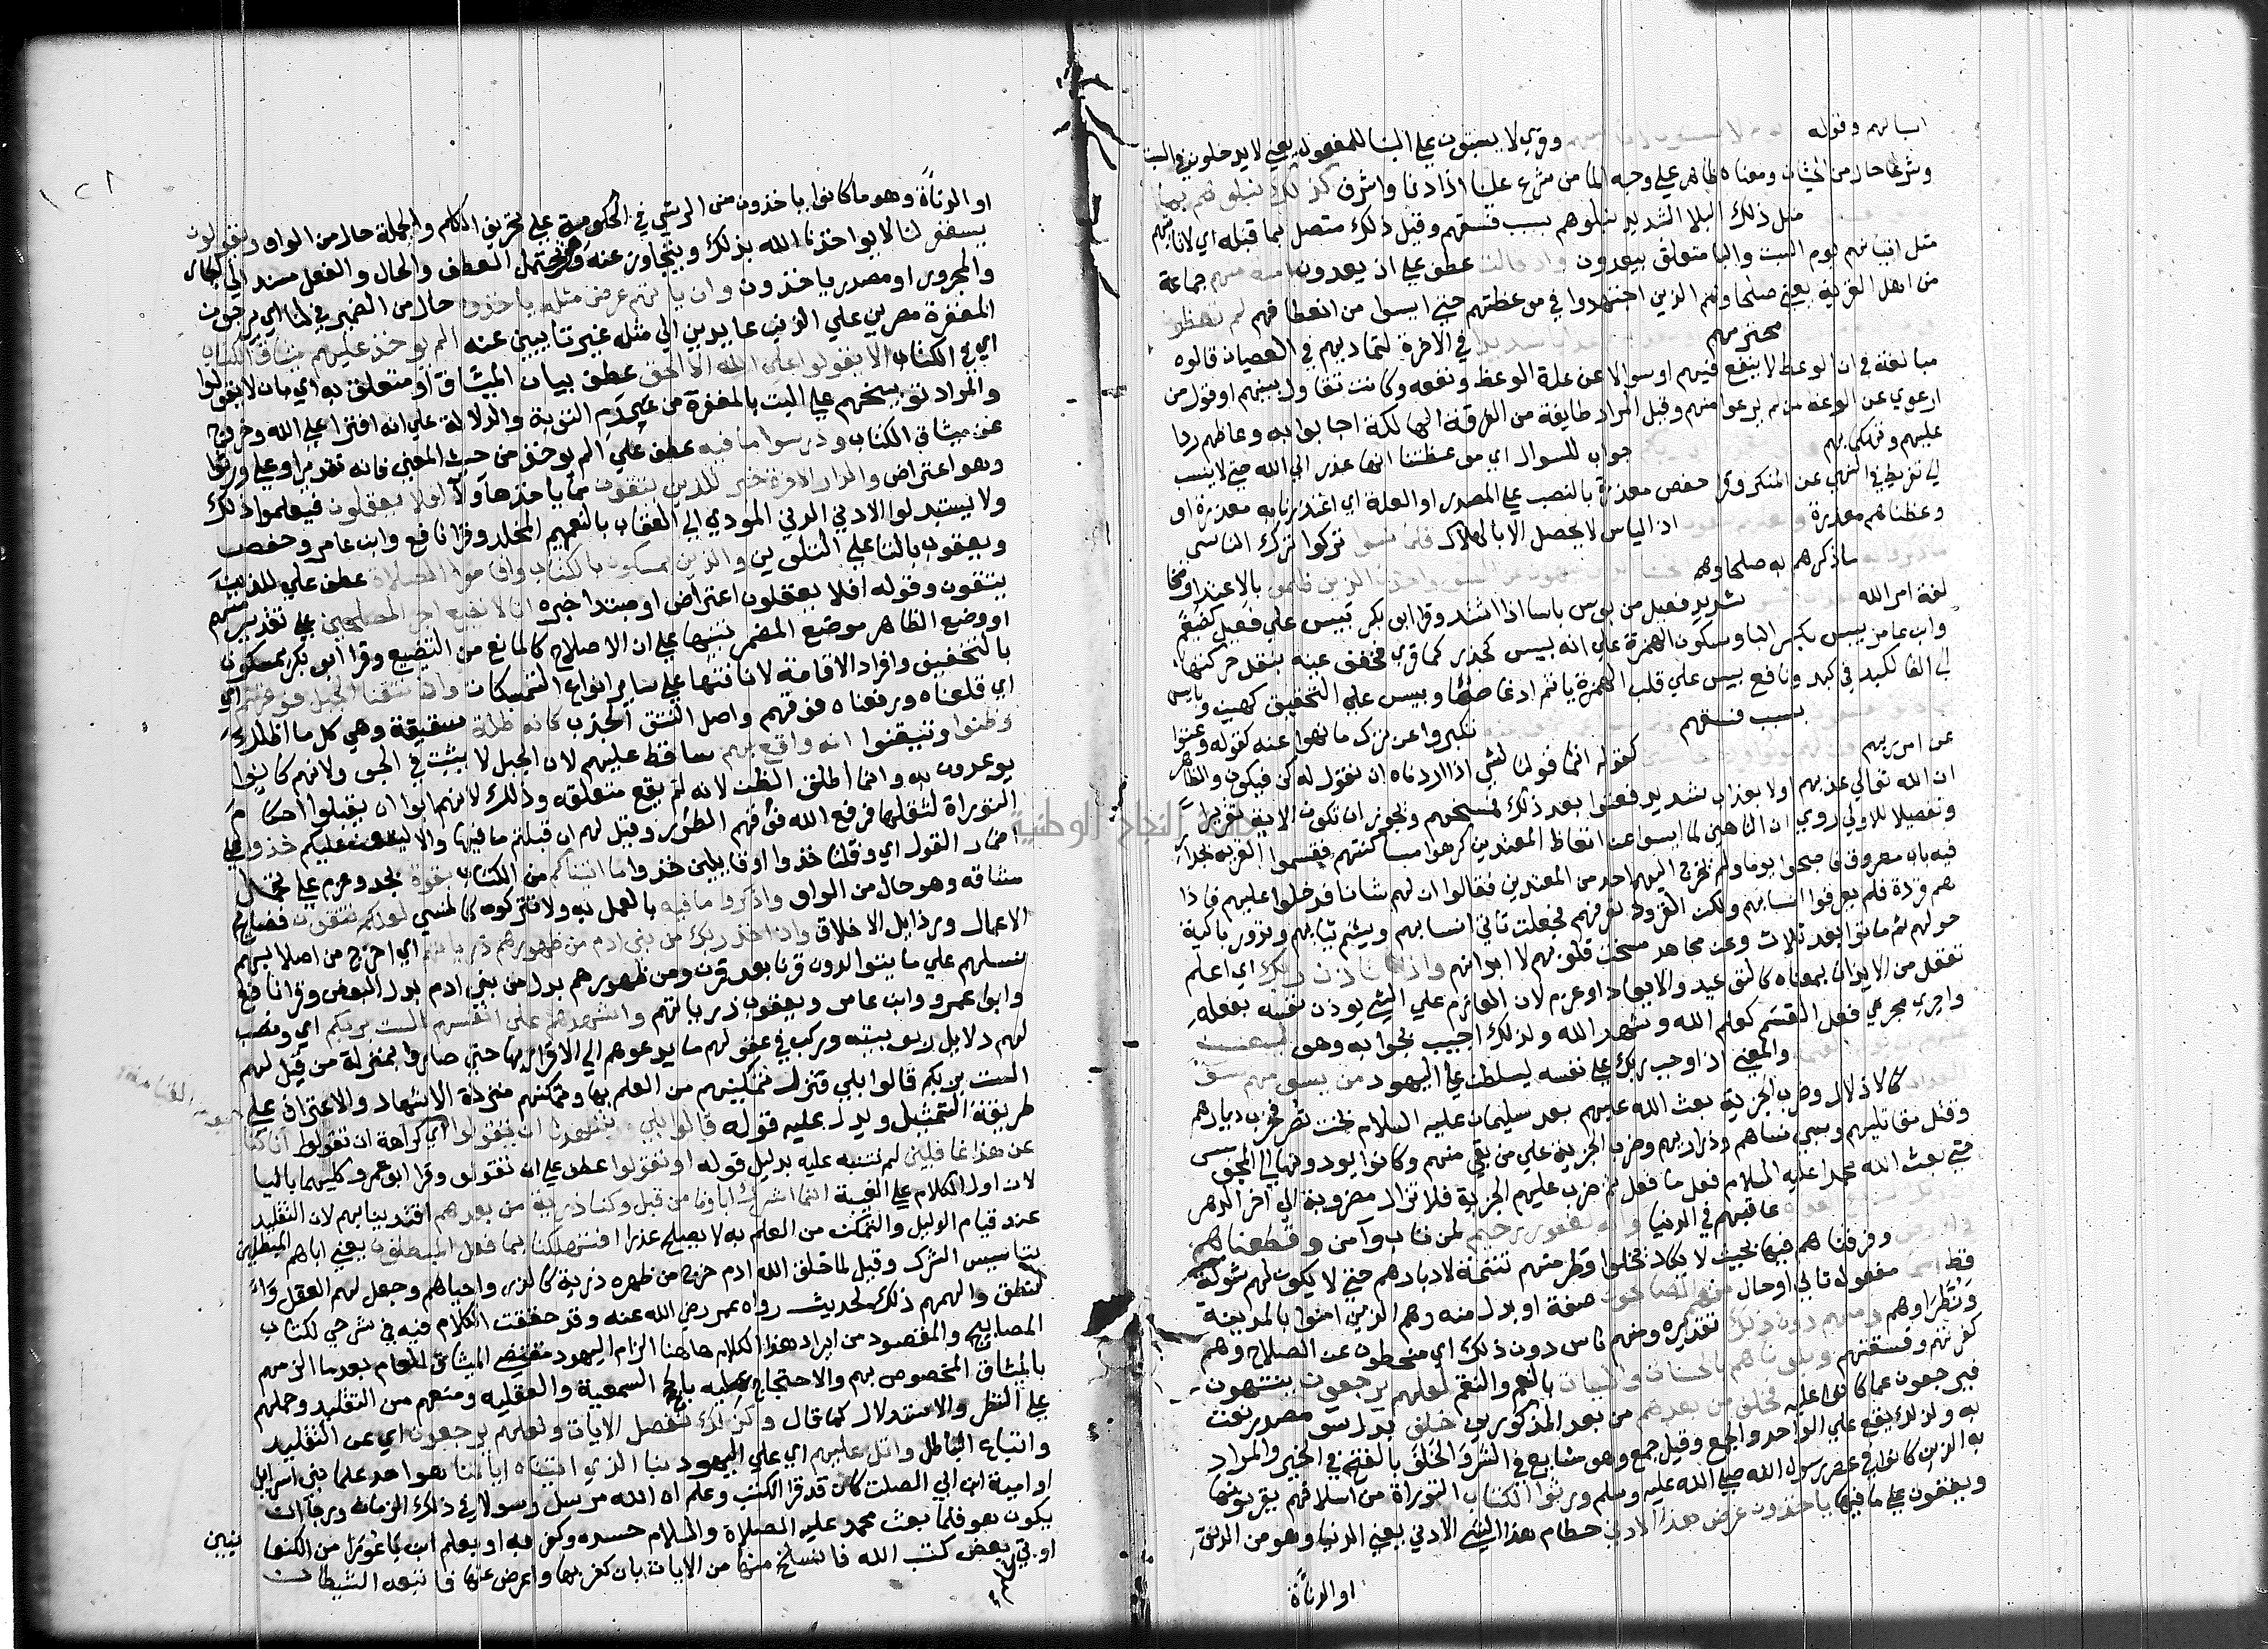 وقري لا يسبتون علي البنا للمفعول يعني لا يدخلون في السبت
وشرعا حال من الحيتان ومعناه ظاهرة علي وجه الما من شرع علينا اذا دنا واشرف كذلك نبلوهم بما
مثل ذلك البلا الشديد نبلوهم بسبب فسقهم وقيل ذلك متصل بما قبله اي لا تاتيهم
مثل اتيانهم يوم السبت والبا متعلق بيعدون واذ قالت عطف علي اذ يعدون امة منهم جماعة
من اهل القرية يعني صلحاوهم الذين اجتهدوا في موعظتهم حتي ايسوا من اتعاظهم لم تعظون
مخترمهم في الاخرة لتماديهم في العصيان قالوه
مبالغة في ان الوعظ لا ينفع فيهم او سوالا عن علة الوعظ ونفعه وكانه تقاول بينهم او قول من
ارعوي عن الوعظ من لم يرعو منهم وقيل المراد طايفة من الفرقة الهالكة اجابوا به وعاظهم ردا
عليهم وتهكما بهم جواب للسوال اي موعظتنا انها عذر الي الله حتي لا ننسب
الي تفريط في النهي عن المنكر وقرا حفص معذرة بالنصب علي المصدر او العلة اي اعتذرنا به معذرة او
وعظناهم معذرة اذ الياس لا يحصل الا بالهلاك فلما نسوا تركوا ترك الناسي
ما ذكرهم به صلحاوهم بالاعتدا ومخا
لفة امر الله شديد فعيل من بوس باسا اذا اشتد وقرا ابو بكر بيس علي فيعل كضيغم
وابن عامر بيس بكسر البا وسكون الهمزة علي انه بيس كحذر كما قري فخفف عينه بنقل حركتها
الي الفا ككبد في كبد ونافع بيس علي قلب الهمزة يا
بسبب فسقهم
عن امر ربهم تكبروا عن ترك ما نهوا عنه كقوله وعتوا
كقوله انما قولنا لشي اذا اردناه ان نقول له كن فيكون والظاهر
ان الله تعالي عذبهم اولا بعذاب شديد فعتوا بعد ذلك فمسخهم ويجوز ان تكون الاية تقريرا
وتفصيلا للاولي روي ان الناهين لما ايسوا عن اتعاظ المعتدين كرهوا مساكنتهم فقسموا القرية بجدار
فيه باب مطروق فاصبحوا يوما ولم يخرج اليهم احد من المعتدين فقالوا ان لهم شانا فدخلوا عليهم فاذا
هم قردة فلم يعرفوا انسابهم ولكن القرود تعرفهم فجعلت تاتي انسابهم وتشم ثيابهم وتدور باكية
حولهم ثم ماتوا بعد ثلاث وعن مجاهد مسخت قلوبهم لا ابدانهم واذ تاذن ربك اي اعلم
تفعل من الايذان بمعناه كالتوعيد والايعاد او عزم لان العازم علي الشي يوذن نفسه بفعله
واجري مجري فعل القسم كعلم الله وشهد الله ولذلك اجيب بجوابه وهو ليبعثن
والمعني اذ اوجب ربك علي نفسه ليسلطن علي اليهود من يسومهم سو
العذاب كالاذلال وضرب الجزية بعث الله عليهم بعد سليمان عليه السلام بخت نصر فخرب ديارهم
وقتل مقاتليهم وسبي نساهم وذراريهم وضرب الجزية علي من بقي منهم وكانوا يودونها الي المجوس
حتي بعث الله محمدا عليه السلام ففعل ما فعل ثم ضرب عليهم الجزية فلا تزال مضروبة الي اخر الدهر
عاقبهم في الدنيا وانه لغفور رحيم لمن تاب وامن وقطعناهم
وفرقناهم فيها بحيث لا يكاد يخلوا قطر منهم تتمة لادبارهم حتي لا يكون لهم شوكة
قط مفعول ثاني او حال منهم الصالحون صفة او بدل منه وهم الذين امنوا بالمدينة
ونظراوهم ومنهم دون ذلك تقديره ومنهم ناس دون ذلك اي منحطون عن الصلاح وهم
كفرتهم وفسقتهم وبلوناهم بالحسنات والسيات بالنعم والنقم لعلهم يرجعون ينتهون
فيرجعون عما كانوا عليه فخلف من بعدهم من بعد المذكورين خلف بدل سو مصدر نعت
به ولذلك يقع علي الواحد والجمع وقيل جمع وهو شايع في الشر والخلف بالفتح في الخير والمراد
به الذين كانوا في عصر رسول الله صلي الله عليه وسلم ورثوا الكتاب التوراة من اسلافهم يقرونها
ويقفون علي ما فيها ياخذون عرض هذا الادني حطام هذا الشي الادني يعني الدنيا وهو من الدنو
او الدناة
او الدناة وهو ما كانوا ياخذون من الرشي في الحكومة علي تحريف الكلم والجملة حال من الواو ويقولون
سيغفر لنا لا يواخذنا الله بذلك ويتجاوز عنه وهو يحتمل العطف والحال والفعل مسند الي الجار
والمجرور او مصدر ياخذون وان ياتهم عرض مثله ياخذوه حال من الضمير في لنا اي يرجون
المغفرة مصرين علي الذنب عايدين الي مثله غير تايبين عنه الم يوخذ عليهم ميثاق الكتاب
اي في الكتاب الا يقولوا علي الله الا الحق عطف بيان للميثاق او متعلق به اي بان لا يقولوا
والمراد توبيخهم علي البت بالمغفرة من عدم التوبة والدلالة علي انه افترا علي الله وخروج
عن ميثاق الكتاب ودرسوا ما فيه عطف علي الم يوخذ من حيث المعني فانه تقرير او علي ورثوا
وهو اعتراض والدار الاخرة خير للذين يتقون مما ياخذها ولا افلا يعقلون فيعلموا ذلك
ولا يستبدلوا الادني الدني المودي الي العقاب بالنعيم المخلد وقرا نافع وابن عامر وحفص
ويعقوب بالتا علي التلوين والذين يمسكون بالكتاب واقاموا الصلاة عطف علي للذين
يتقون وقوله افلا يعقلون اعتراض او مبتدا خبره انا لا نضيع اجر المصلحين علي تقدير منهم
او وضع الظاهر موضع المضمر تنبيها علي ان الاصلاح كالمانع من التضييع وقرا ابو بكر يمسكون
بالتخفيف وافراد الاقامة لانافتها علي ساير انواع التمسكات واذ نتقنا الجبل فوقهم اي
اي قلعناه ورفعناه فوقهم واصل النتق الجذب كانه ظلة سقيفة وهي كل ما اظلك
وظنوا وتيقنوا انه واقع بهم ساقط عليهم لان الجبل لا يثبت في الجو ولانهم كانوا
يوعدون به وانما اطلق الظن لانه لم يقع متعلقه وذلك لانهم ابوا ان يقبلوا احكام
التوراة لثقلها فرفع الله فوقهم الطور وقيل لهم ان قبلتم ما فيها والا ليقعن عليكم خذوا علي
اضمار القول اي وقلنا خذوا او قايلين خذوا ما اتيناكم من الكتاب بقوة بجد وعزم علي تحمل
مشاقه وهو حال من الواو واذكروا ما فيه بالعمل به ولا تتركوه كالمنسي لعلكم تتقون فضايح
الاعمال ورذايل الاخلاق واذ اخذ ربك من بني ادم من ظهورهم ذرياتهم اي اخرج من اصلابهم
نسلهم علي ما يتوالدون قرنا بعد قرن ومن ظهورهم بدل من بني ادم بدل البعض وقرا نافع
وابو عمرو وابن عامر ويعقوب ذرياتهم واشهدهم علي انفسهم الست بربكم اي ونصب
لهم دلايل ربوبيته وركب في عقولهم ما يدعوهم الي الاقرار بها حتي صاروا بمنزلة من قيل لهم
الست بربكم قالوا بلي فنزل تمكينهم من العلم بها وتمكنهم منزلة الاشهاد والاعتراف علي
طريقة التمثيل ويدل عليه قوله قالوا بلي شهدنا ان يقولوا اي كراهة ان تقولوا
عن هذا غافلين لم ننبه عليه بدليل قوله او تقولوا عطف علي ان تقولوا وقرا ابو عمرو كليهما باليا
لان اول الكلام علي الغيبة انما اشرك اباونا من قبل وكنا ذرية من بعدهم اقتدينا بهم لان التقليد
عند قيام الدليل والتمكن من العلم به لا يصلح عذرا افتهلكنا بما فعل المبطلون يعني اباهم المبطلين
بتاسيس الشرك وقيل لما خلق الله ادم خرج من ظهره ذرية كالذر واحياهم وجعل لهم العقل و
النطق والهمهم ذلك لحديث رواه عمر رضي الله عنه وقد حققت الكلام فيه في شرحي لكتاب
المصابيح والمقصود من ايراد هذا الكلام هاهنا الزام اليهود بمقتضي الميثاق العام بعد ما الزمهم
بالميثاق المخصوص بهم والاحتجاج عليه بالحجج السمعية والعقليه ومنعهم من التقليد وحملهم
علي النظر والاستدلال كما قال وكذلك نفصل الايات ولعلهم يرجعون اي عن التقليد
واتباع الباطل واتل عليهم اي علي اليهود نبا الذي اتيناه اياتنا هو احد علما بني اسرايل
او امية ابن ابي الصلت كان قد قرا الكتب وعلم ان الله مرسل رسولا في ذلك الزمان ورجا ان
يكون هو فلما بعث محمد عليه الصلاة والسلام حسده وكفر به او بلعم ابن باعورا من الكنعانيين
اوتي علم بعض كتب الله فانسلخ منها من الايات بان كفر بها واعرض عنها فاتبعه الشيطان
جامعة النجاح الوطنية